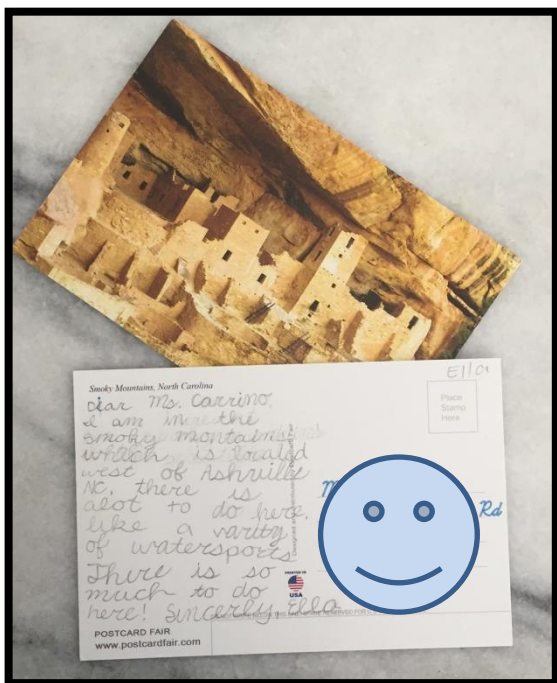 Ella
Smoky Mountains, North Carolina
Dear Ms. Carrino,
I am in the
smoky montains
which is located
west of Ashville
NC. there is
alot to do here.
like a varity
of watersports
There is so
much to do
here! Sincerly, Ella
Place
Stamp
Here
Rd
PRINTED IN
USA
POSTCARD FAIR
www.postcardfair.com